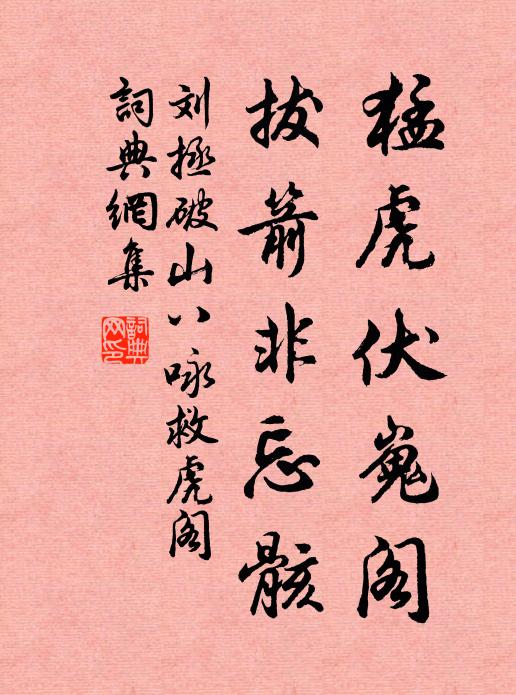 猛虎伏嵬阁
拔箭非忘骸
刘拯破山八咏救虎阁
詞典網集
詞典
网印